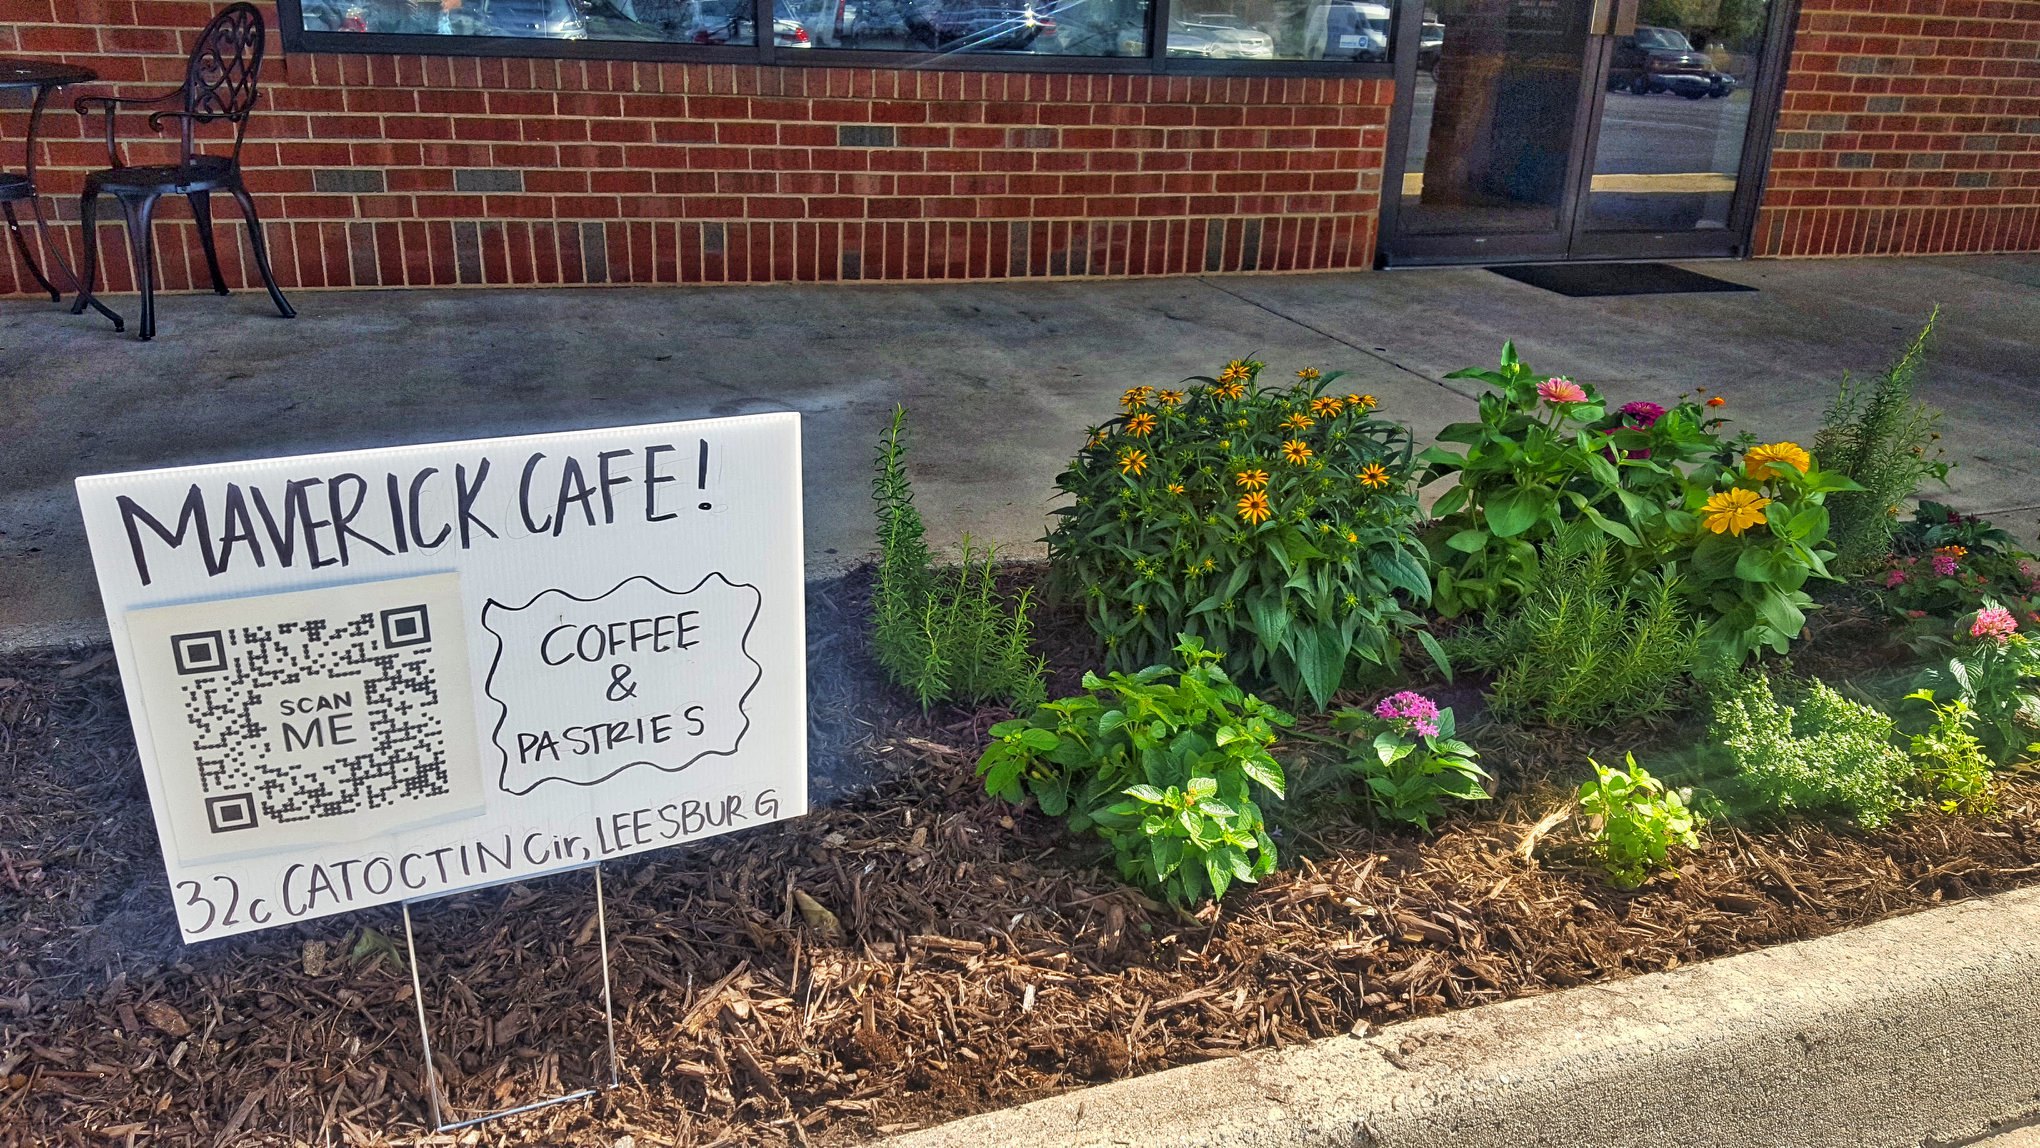 MAVERICK CAFE!
SCAN
ME
COFFEE
&
PASTRIES
32c CATOCTIN Cir, LEESBURG